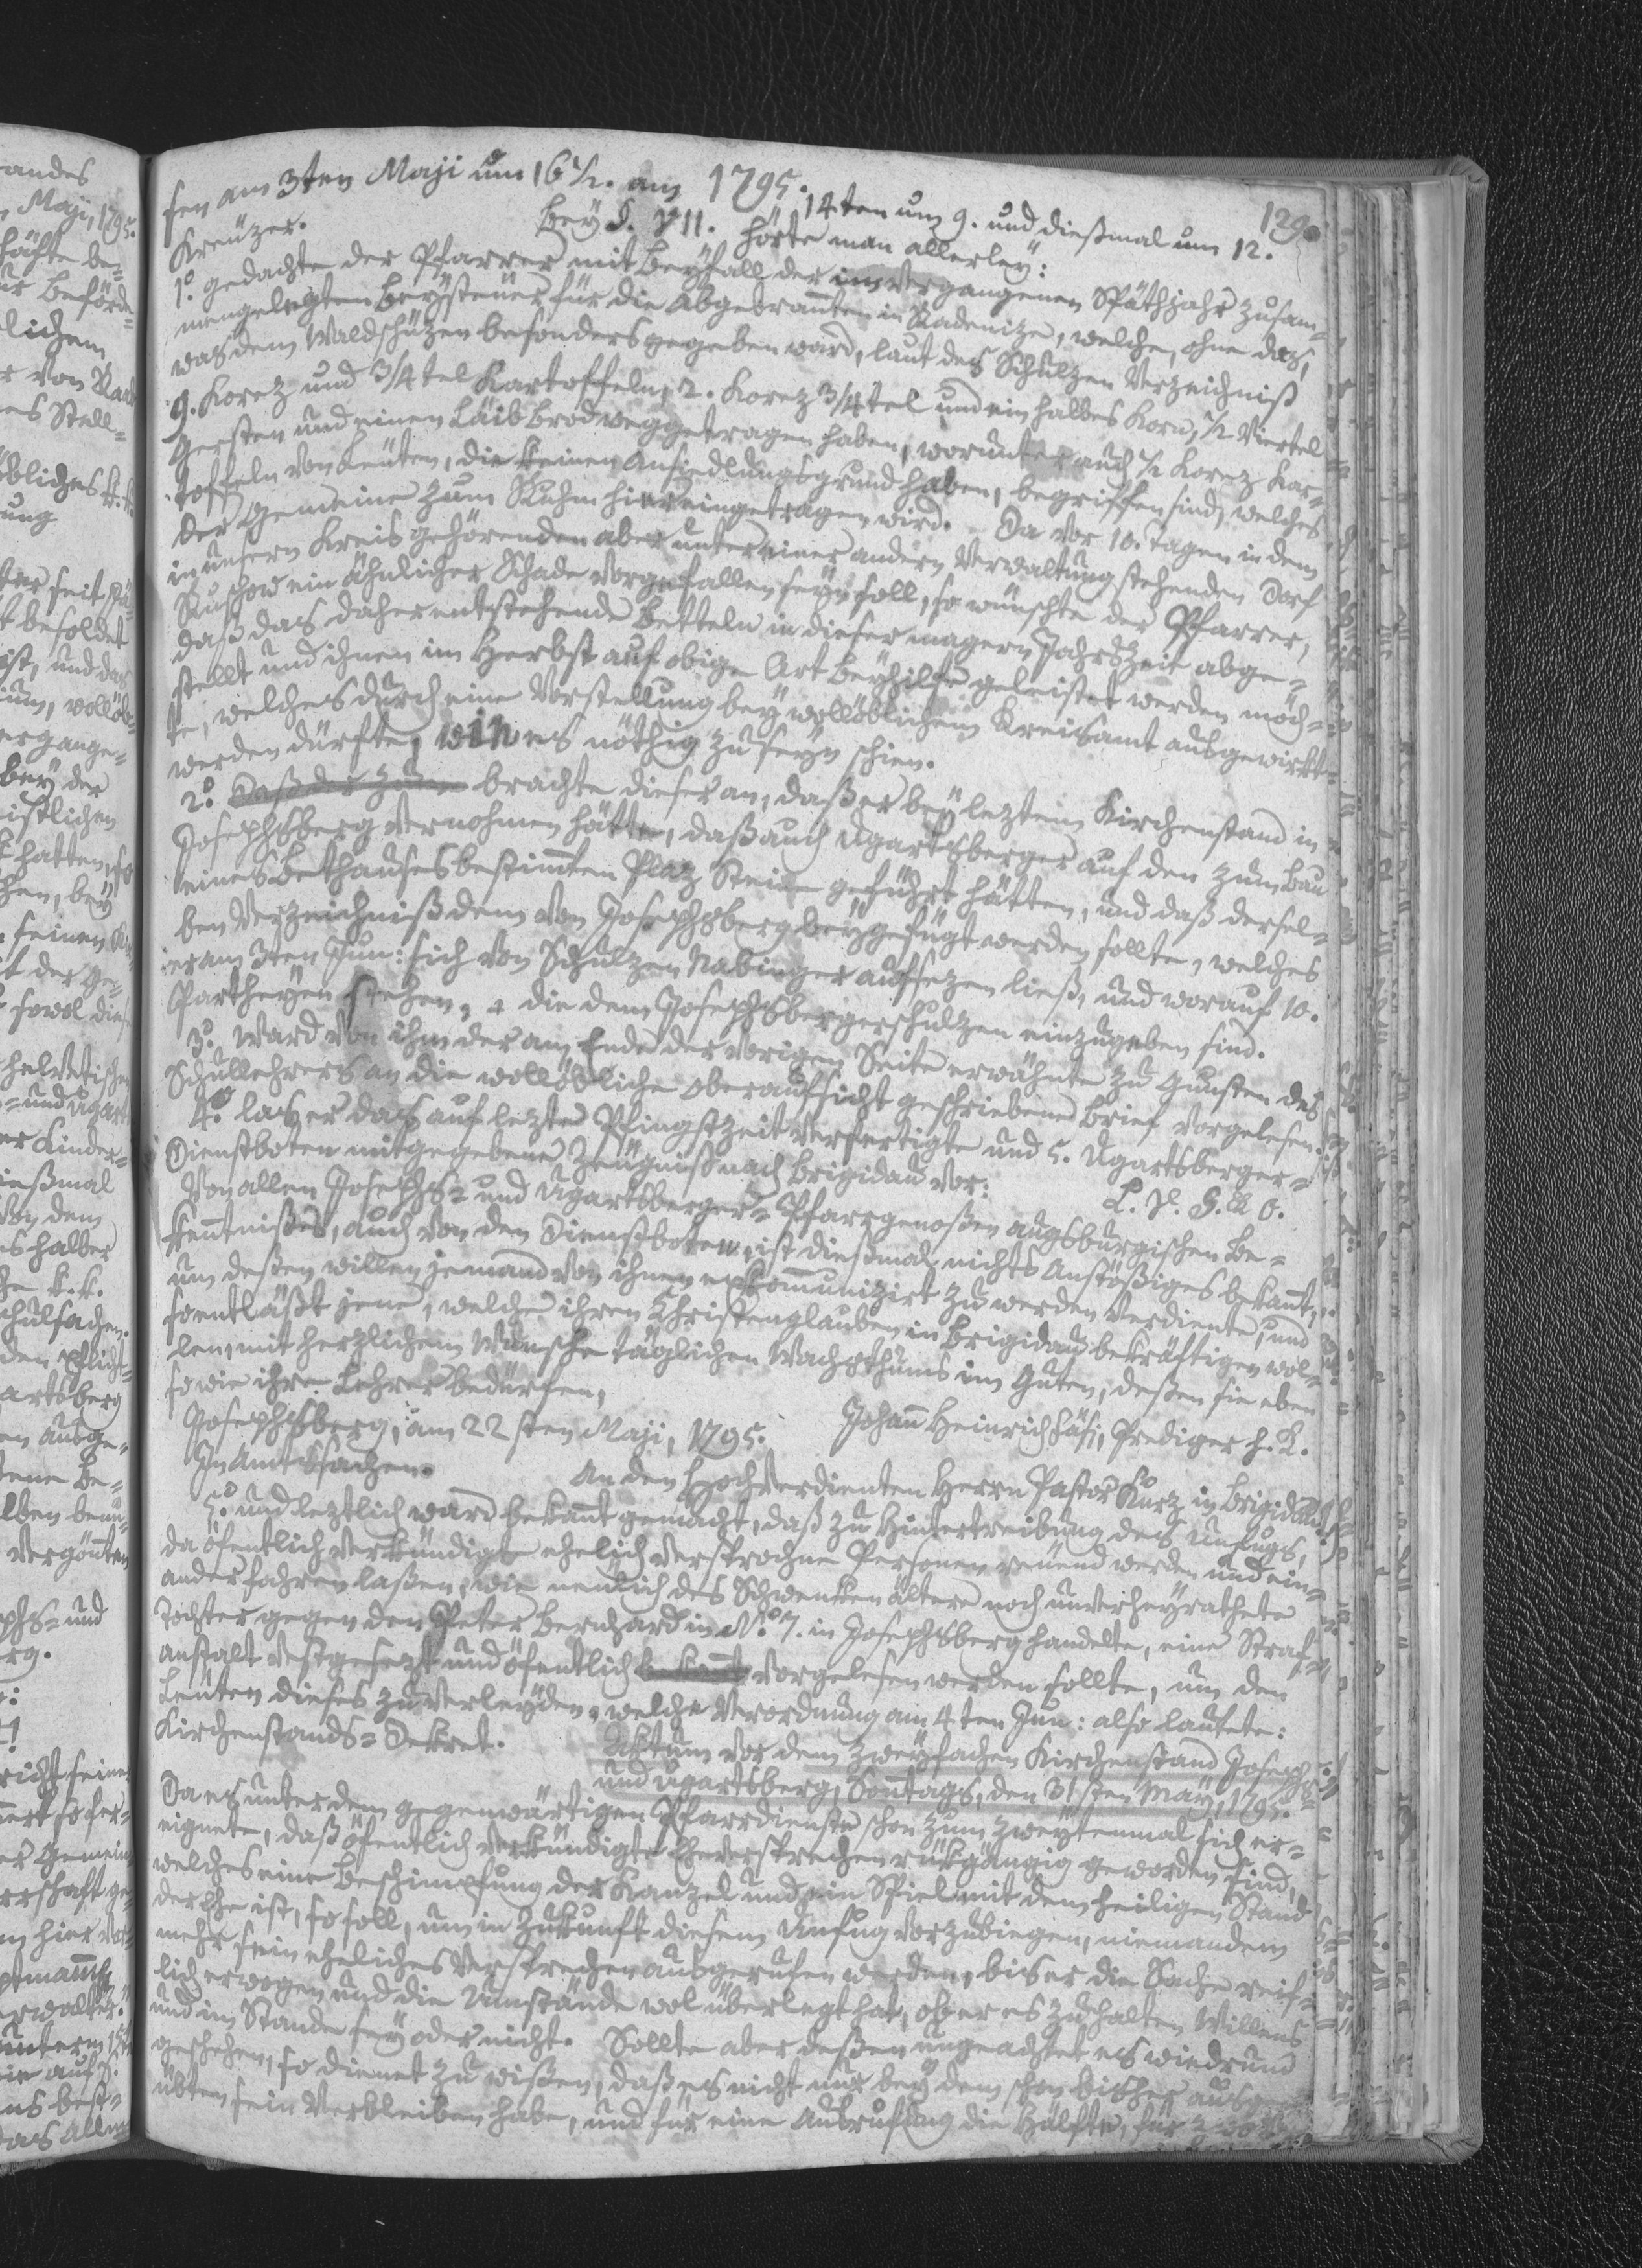 1795.
129.
sen am 3ten Maji um 16 1/2. am 14ten um 9. und dießmal um 12.
Kreuzer.
Bey §. VII. hörte man allerley:
1º. gedachte der Pfarrer mit Beyfall der im vergangenen Späthjahr zusam-
mengelegten Beysteuer für die Abgebrannten in Radenize, welche, ohne das,
was dem Waldschüzen besonders gegeben ward, laut des Schulzen Verzeichniß
9. Korez und 3/4tel Kartoffeln, 2. Korez 3/4tel und ein halbes Korn, 1/2 Viertel
Gersten und einen Laib Brod weggetragen haben, worunter auch 1/2 Korez Kar-
toffeln von Leuten, die keinen Ansiedlungsgrund haben, begriffen sind, welches
der Gemeine zum Ruhm hier eingetragen wird. Da vor 10. Tagen in dem
in unsern Kreis gehörenden aber unter einer andern Verwaltung stehenden Dorf
Ruschow ein ähnlicher Schade vorgefallen seyn soll, so wünschte der Pfarrer,
daß das daher entstehende Betteln in dieser magern Jahrszeit abge-
stellt und ihnen im Herbst auf obige Art Beyhilfe geleistet werden möch-
te, welches durch eine Vorstellung bey wollöblichem Kreisamt ausgewirkt
werden dürfte, wenn es nöthig zu seyn schien.
2º. brachte dieser an, daß er bey leztem Kirchenstand in
Josephsberg vernohmen hätte, daß auch Ugartsberger auf den zum Bau
eines Bethauses bestimmten Plaz Steine geführt hätten, und daß dersel-
ben Verzeichniß dem von Josephsberg beygefügt werden sollte, welches
er am 3ten Jun: sich von Schulzen Nabinger aufsezen ließ, und worauf 10.
Partheyen stehen, die dem Josephsbergerschulzen einzugeben sind.
3º. Ward von ihm der am Ende der vorigen Seite erwähnte zu Gunsten des
Schullehrers an die wollöbliche Oberaufsicht geschriebene Brief vorgelesen.
4º. las er das auf lezte Pfingstzeit verfertigte und 5. Ugartsberger-
Dienstboten mitgegebene Zeugniß nach Brigidau vor:
Von allen Josephs- und Ugartsberger- Pfarrgenoßen augsburgischen Be-
kenntnißes, auch von den Dienstboten, ist dießmal nichts Anstößiges bekannt,
um deßen willen jemand von ihnen exkommunizirt zu werden verdiente, und
so entläßt jene, welche ihren Christenglauben in Brigidau bekräftigen wol-
len, mit herzlichem Wunsche täglichen Wachsthums im Guten, deßen sie eben
so wie ihre Lehrer bedürfen,
Josephsberg, am 22sten Maji, 1795. Johann Heinrich Fäsi, Prediger h. K.
In Amtssachen.
An den Hochverdienten Herrn Pastor Kurz in Brigidau.
5º. und leztlich ward bekannt gemacht, daß zu Hintertreibung des Unfugs,
da öfentlich verkündigte ehelich versprochne Personen reuend werden und ein-
ander fahren laßen, wie neulich des Schwenken ältere noch unverheyrathete
Tochter gegen den Peter Bernhard in Nº. 7. in Josephsberg handelte, eine Straf-
anstalt vestgesezt und öfentlich vorgelesen werden sollte, um den
Leuten dieses zu verleyden, welche Verordnung am 4ten Jun: also lautete:
Kirchenstands-Dekret.
Aktum vor dem zweyfachen Kirchenstand Josephs-
und Ugartsberg, Sonntags, den 31sten May, 1795.
Da es unter dem gegenwärtigen Pfarrdienste schon zum zweytenmal sich er-
eignete, daß öfentlich verkündigte Eheversprechen rükgängig geworden sind,
welches eine Beschimpfung der Kanzel und ein Spiel mit dem heiligen Stand
der Ehe ist, so soll, um in Zukunft diesem Unfug vorzubiegen, niemandem
mehr sein eheliches Versprechen ausgerufen werden, bis er die Sache reif-
lich erwogen und die Umstände wol überlegt hat, ob er es zu halten Willens
und im Stande sey oder nicht. Sollte aber deßen ungeachtet es wiedrum
geschehen, so dienet zu wißen, daß es nicht nur bey dem schon bisher ausge-
übten sein Verbleiben habe, und für eine Ausrufung die Hälfte, für